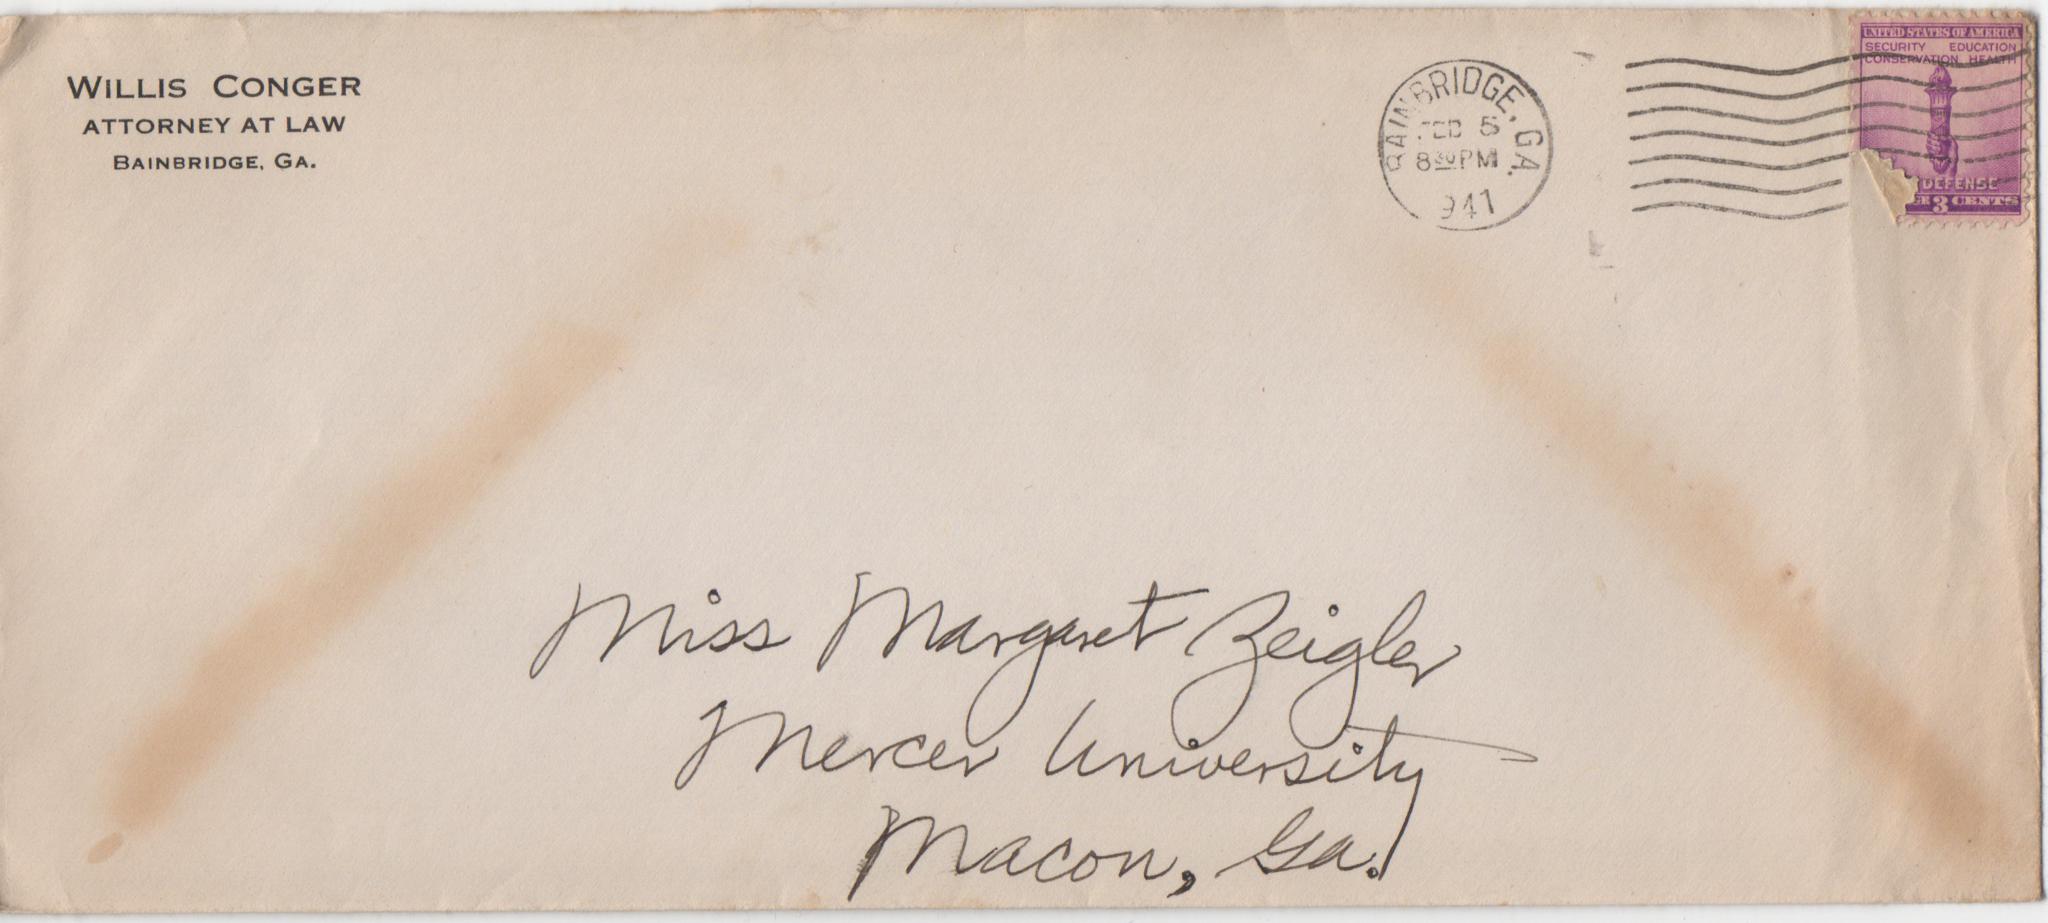 WILLIS CONGER
ATTORNEY AT LAW
BAINBRIDGE, GA.
BAINBRIDGE, GA.
FEB 5
8 30 PM
1941
UNITED STATES OF AMERICA
SECURITY EDUCATION
CONSERVATION HEALTH
DEFENSE
3 CENTS
Miss Margaret Zeigler
Mercer University
Macon, Ga.